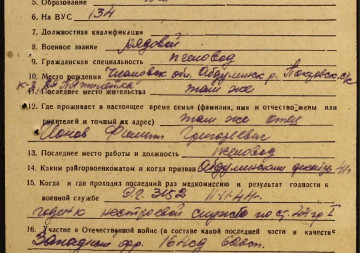 5. Образование
6. На ВУС 134
7. Должностная квалификация
8. Военное звание рядовой
9. Гражданская специальность пчеловод
10. Место рождения Чкаловск. обл. Абдулинск. р. Покровск. с/с
к-з "Пятилетка"
11. Последнее место там же
12. Где проживает в настоящее время семья (фамилия, имя и отчество жены или
родителей и точный их адрес) там же отец
Григорьевич
13. Последнее место работы и должность пчеловод
14. Каким райгорвоенкоматом и когда призван Абдулинским декабрь 41 г
15. Когда и где проходил последний раз медкомиссию и результат годности к
военной службе
годен к нестроевой службе по ст.
16. Участие в Отечественной войне (в составе какой последней части и качестве
Западный фр.